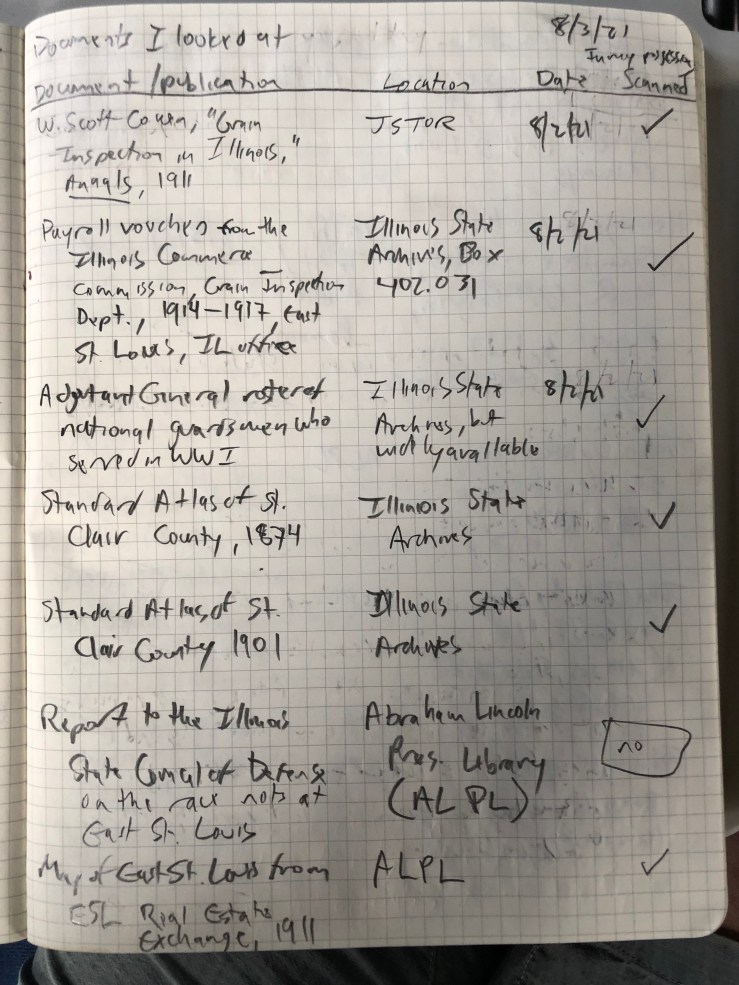 Documents I looked at 8/3/21
In my possession
Document/publication Location Date Scanned
W. Scott Cowen, "Grain JSTOR 8/2/21 ✓
Inspection in Illinois,"
Annals, 1911
Payroll vouchers from the Illinois State 8/2/21
Illinois Commerce Archives, Box ✓
Commission, Grain Inspection 402.031
Dept., 1914-1917, East
St. Louis, IL office
Adjutant General roster of Illinois State 8/2/21
national guardsmen who Archives, but ✓
served in WWI widely available
Standard Atlas of St. Illinois State ✓
Clair County, 1874 Archives
Standard Atlas of St. Illinois State ✓
Clair County 1901 Archives
Report to the Illinois Abraham Lincoln
State Council of Defense Pres. Library no
on the race riots at (ALPL)
East St. Louis
Map of East St. Louis from ALPL ✓
ESL Real Estate
Exchange, 1911